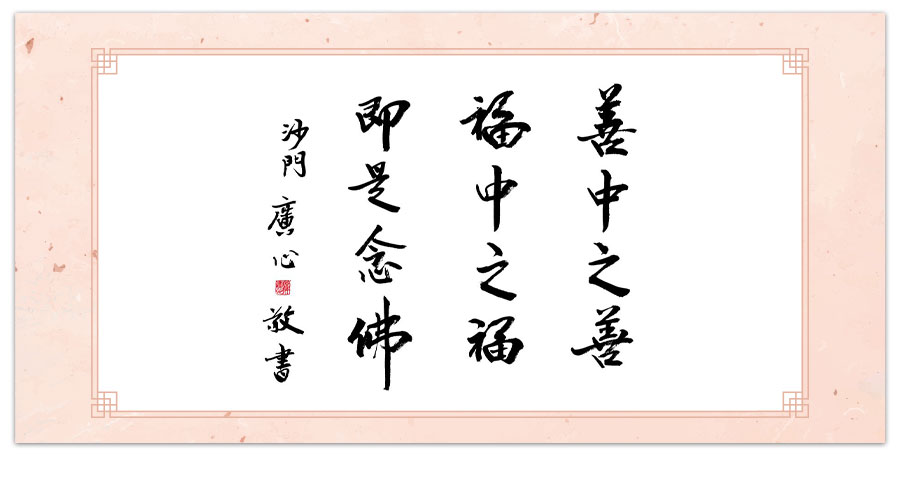 善中之善
福中之福
即是念佛
沙門 廣心 敬書